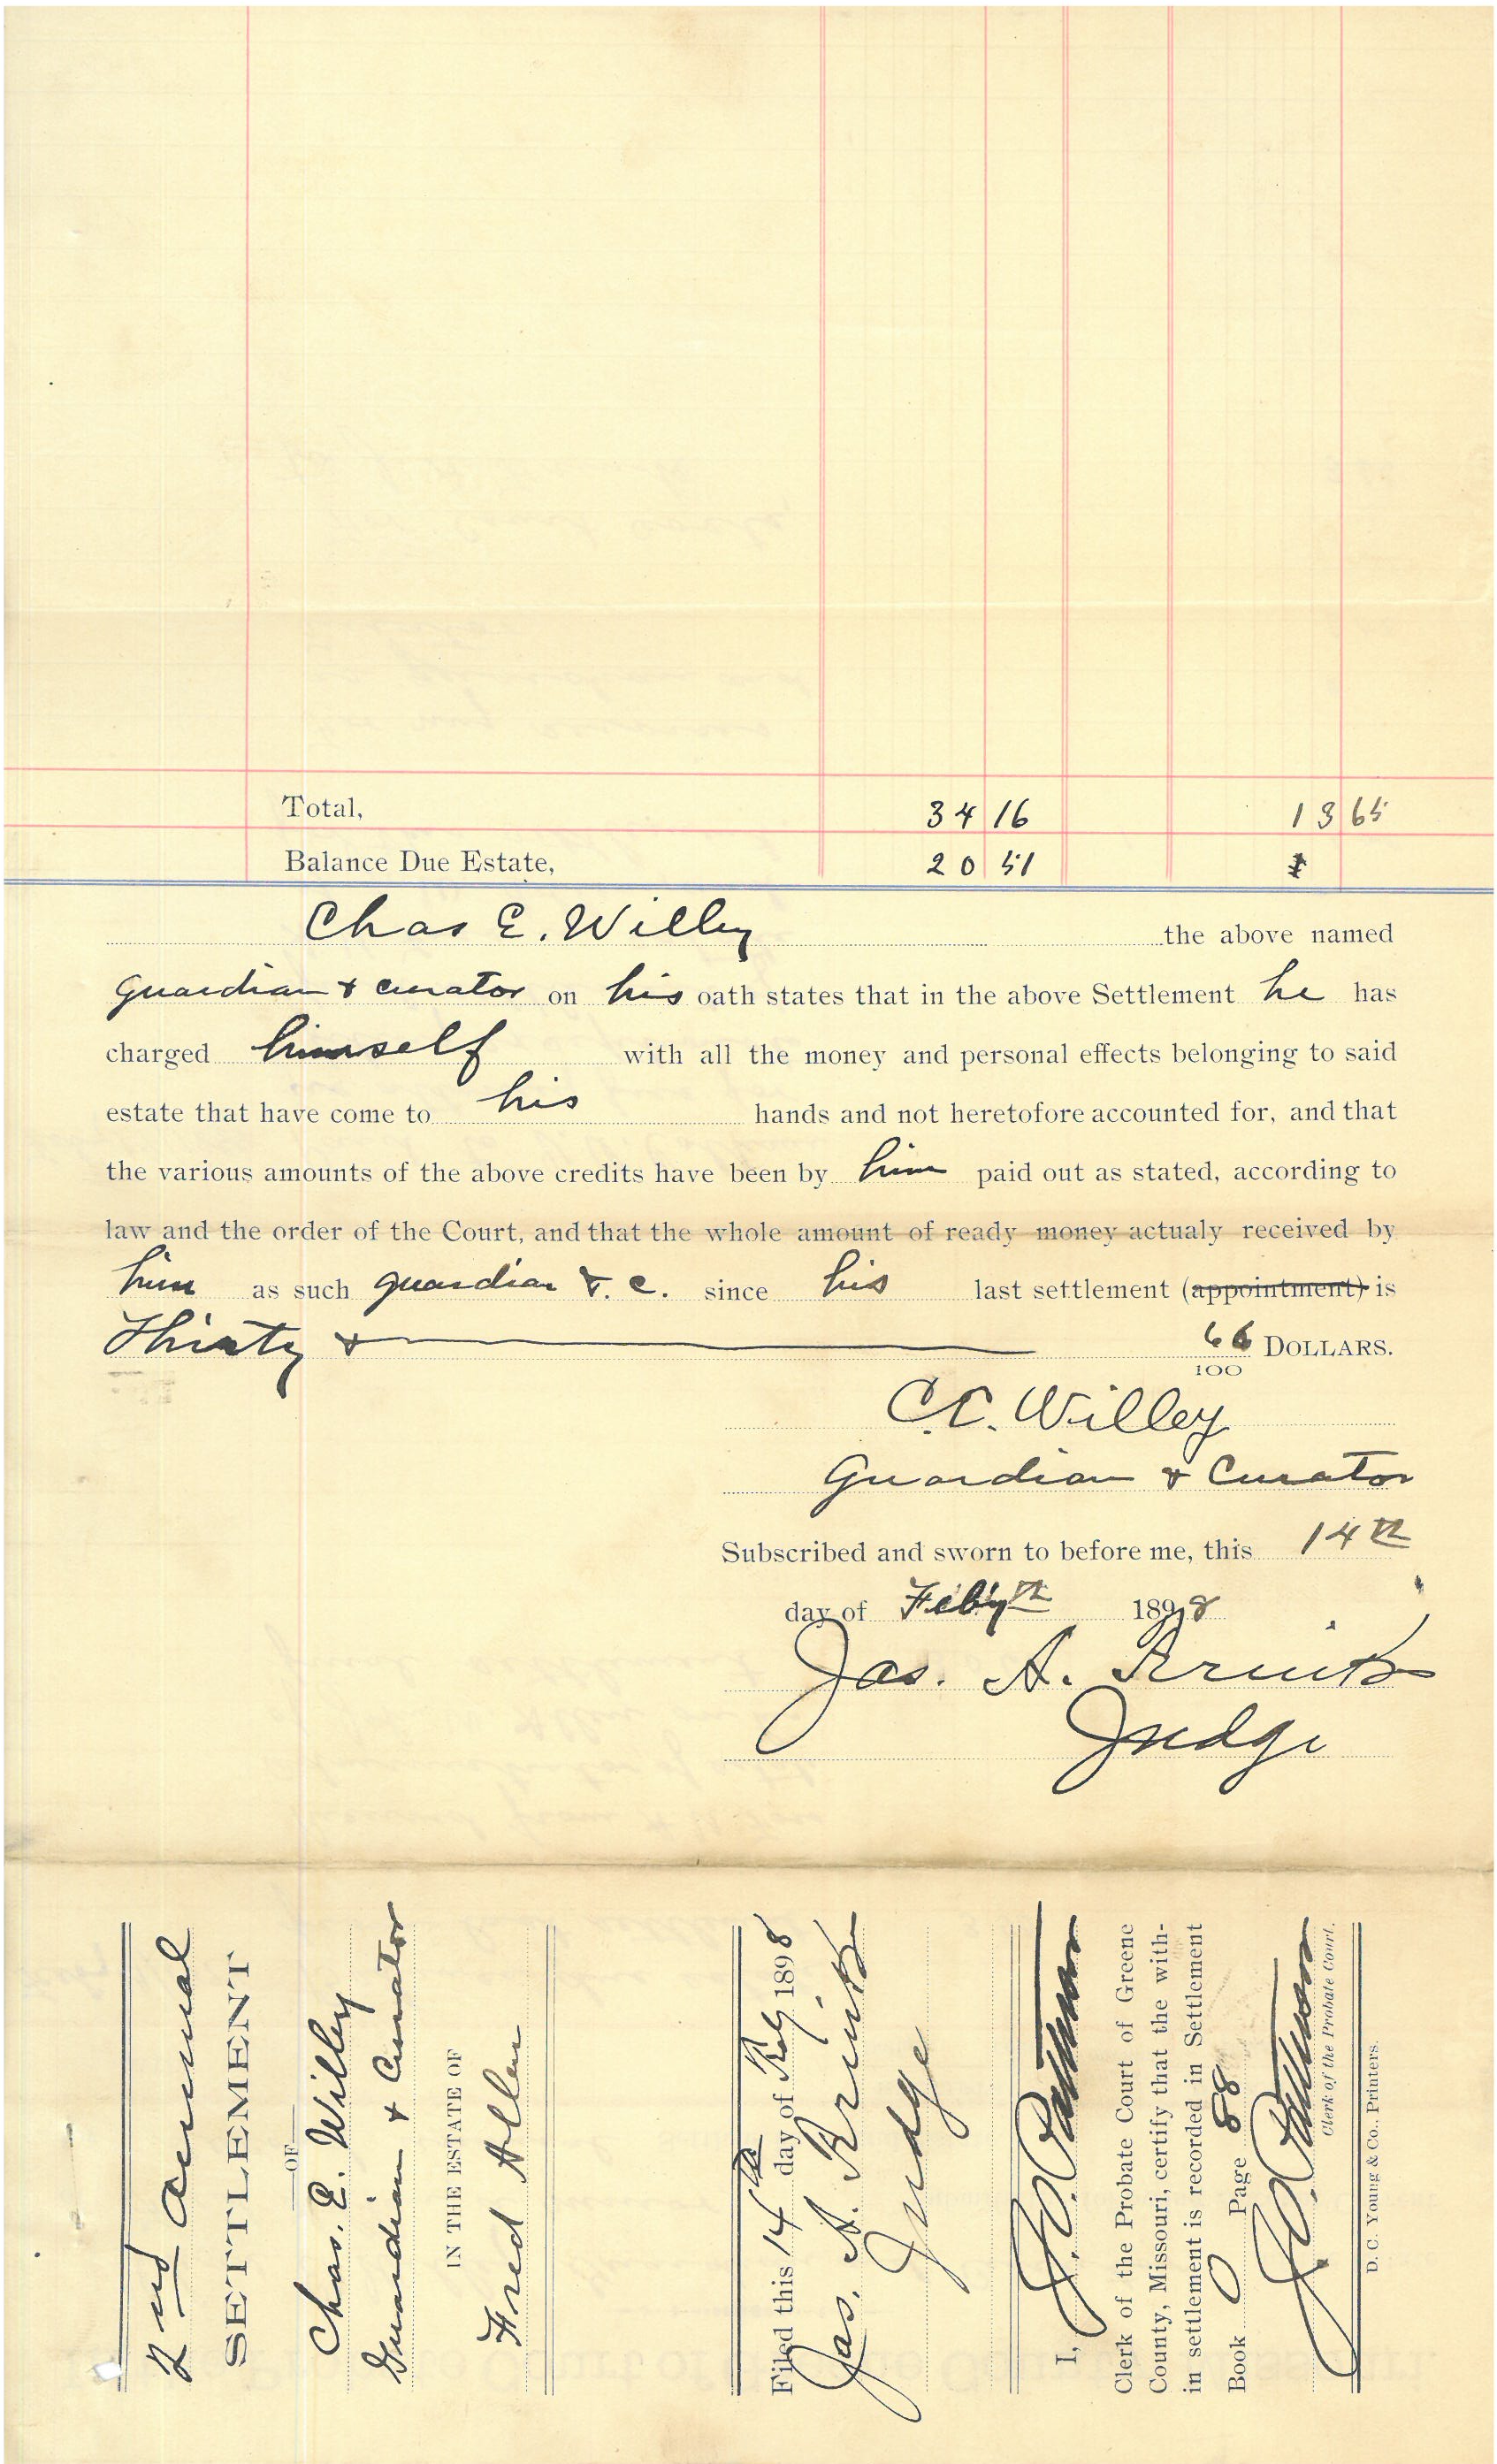 Total, 34 16 13 65
Balance Due Estate, 20 51
Chas E. Willey the above named
guardian & curator on his oath states that in the above Settlement he has
charged himself with all the money and personal effects belonging to said
estate that have come to his hands and not heretofore accounted for, and that
the various amounts of the above credits have been by him paid out as stated, according to
law and the order of the Court, and that the whole amount of ready money actualy received by
him as such guardian & c. since his last settlement (appointment) is
Thirty & 66/100 DOLLARS.
C.C. Willey
Guardian & Curator
Subscribed and sworn to before me, this 14th
day of Feby 1898
Jas. A.
Judge
2nd annual
SETTLEMENT
OF
Chas. E. Willey
Guardian & Curator
IN THE ESTATE OF
Fred Allen
Filed this 14th day of Feby 1898
Jas. A.
Judge
I,
Clerk of the Probate Court of Greene
County, Missouri, certify that the with-
in settlement is recorded in Settlement
Book O Page 88
Clerk of the Probate Court.
D. C. Young & Co., Printers.